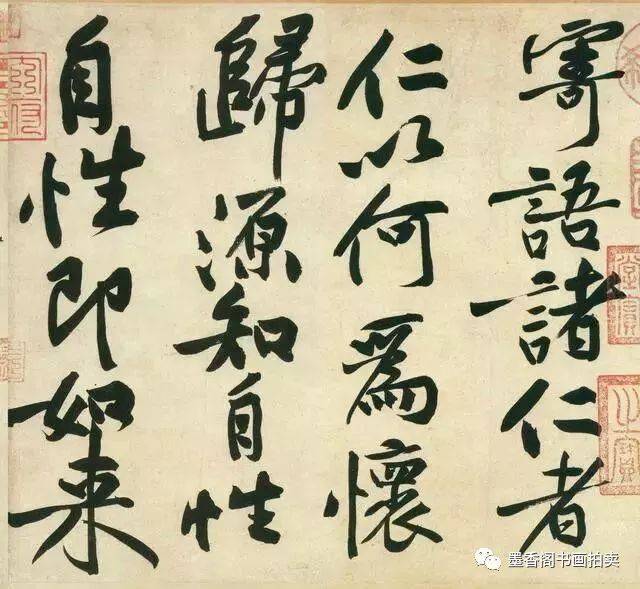 寄語諸仁者
仁以何爲懷
歸源知自性
自性即如来
墨香阁书画拍卖